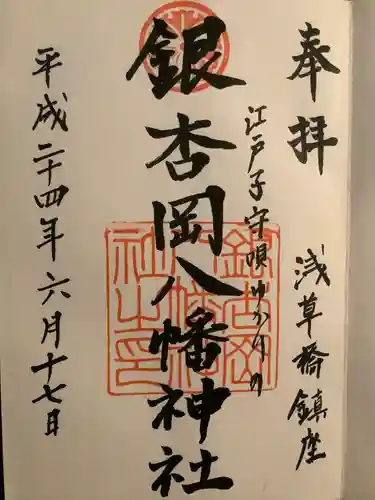 奉拝
浅草橋鎮座
江戸子守唄ゆかりの
銀杏岡八幡神社
平成二十四年六月十七日
銀杏岡八幡神社之印